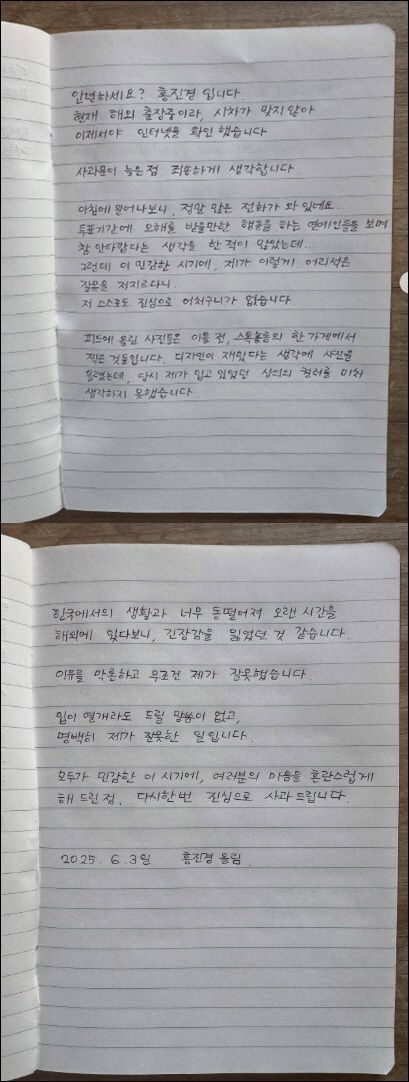 안녕하세요? 홍진경 입니다.
현재 해외 출장중이라, 시차가 맞지 않아
이제서야 인터넷을 확인 했습니다
사과문이 늦은점 죄송하게 생각합니다.
아침에 일어나보니, 정말 많은 전화가 와 있네요.
투표기간에 오해를 받을만한 행동을 하는 연예인들을 보며
참 안타깝다는 생각을 한 적이 많았는데...
그런데 이 민감한 시기에, 제가 이렇게 어리석은
잘못을 저지르다니..
저 스스로도 진심으로 어처구니가 없습니다
피드에 올린 사진들은 이틀 전, 스톡홀름의 한 가게에서
찍은 것들입니다. 디자인이 재밌다는 생각에 사진을
올렸는데, 당시 제가 입고 있었던 상의의 컬러를 미처
생각하지 못했습니다.
한국에서의 생활과 너무 동떨어져 오랜 시간을
해외에 있다보니, 긴장감을 잃었던 것 같습니다.
이유를 막론하고 무조건 제가 잘못했습니다.
입이 열개라도 드릴 말씀이 없고,
명백히 제가 잘못한 일입니다.
모두가 민감한 이 시기에, 여러분의 마음을 혼란스럽게
해 드린 점. 다시한번 진심으로 사과 드립니다.
2025. 6. 3일 홍진경 올림.